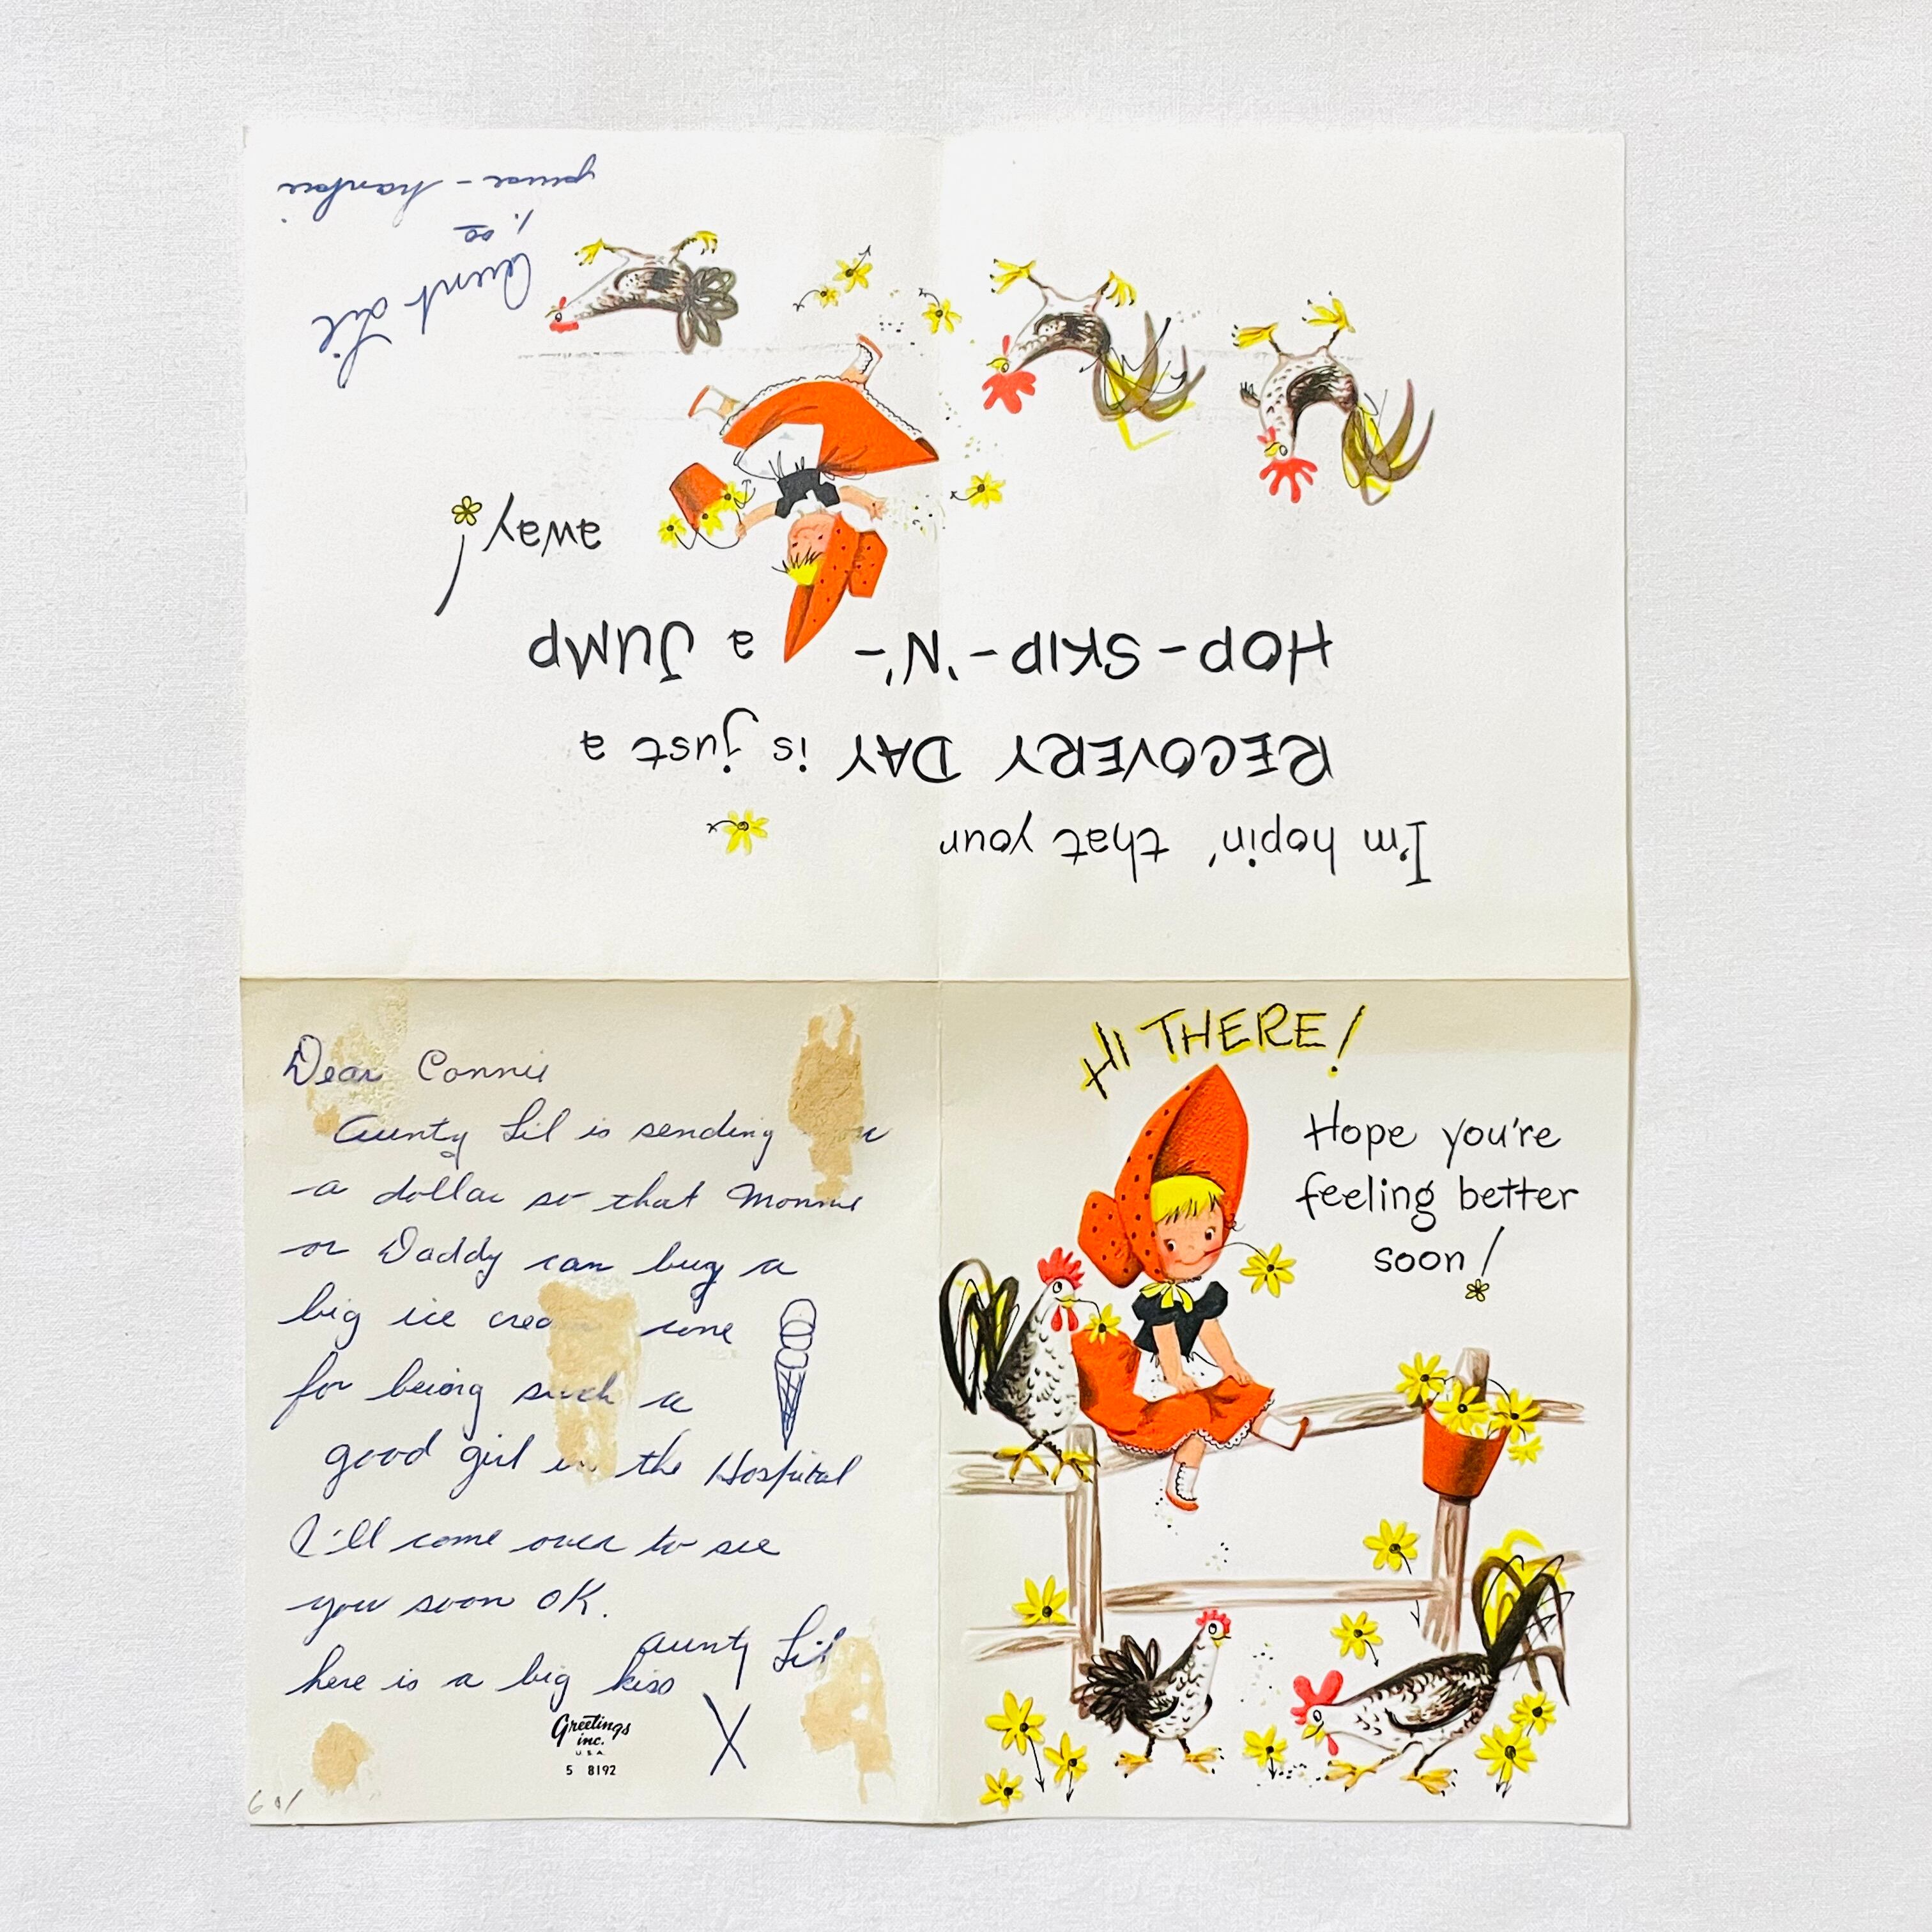 HI THERE!
Hope you're
feeling better
soon!
I'm hopin' that your
RECOVERY DAY is just a
HOP-SKIP-'N'- a JUMP
away!
Aunt Lil
1.00
Dear Connie
Aunty Lil is sending
a dollar so that Mommie
or Daddy can buy a
big ice cream cone
for being such a
good girl in the Hospital
I'll come over to see
you soon OK.
Aunty Lil
here is a big kiss
X
Greetings
inc.
U.S.A.
5 8192